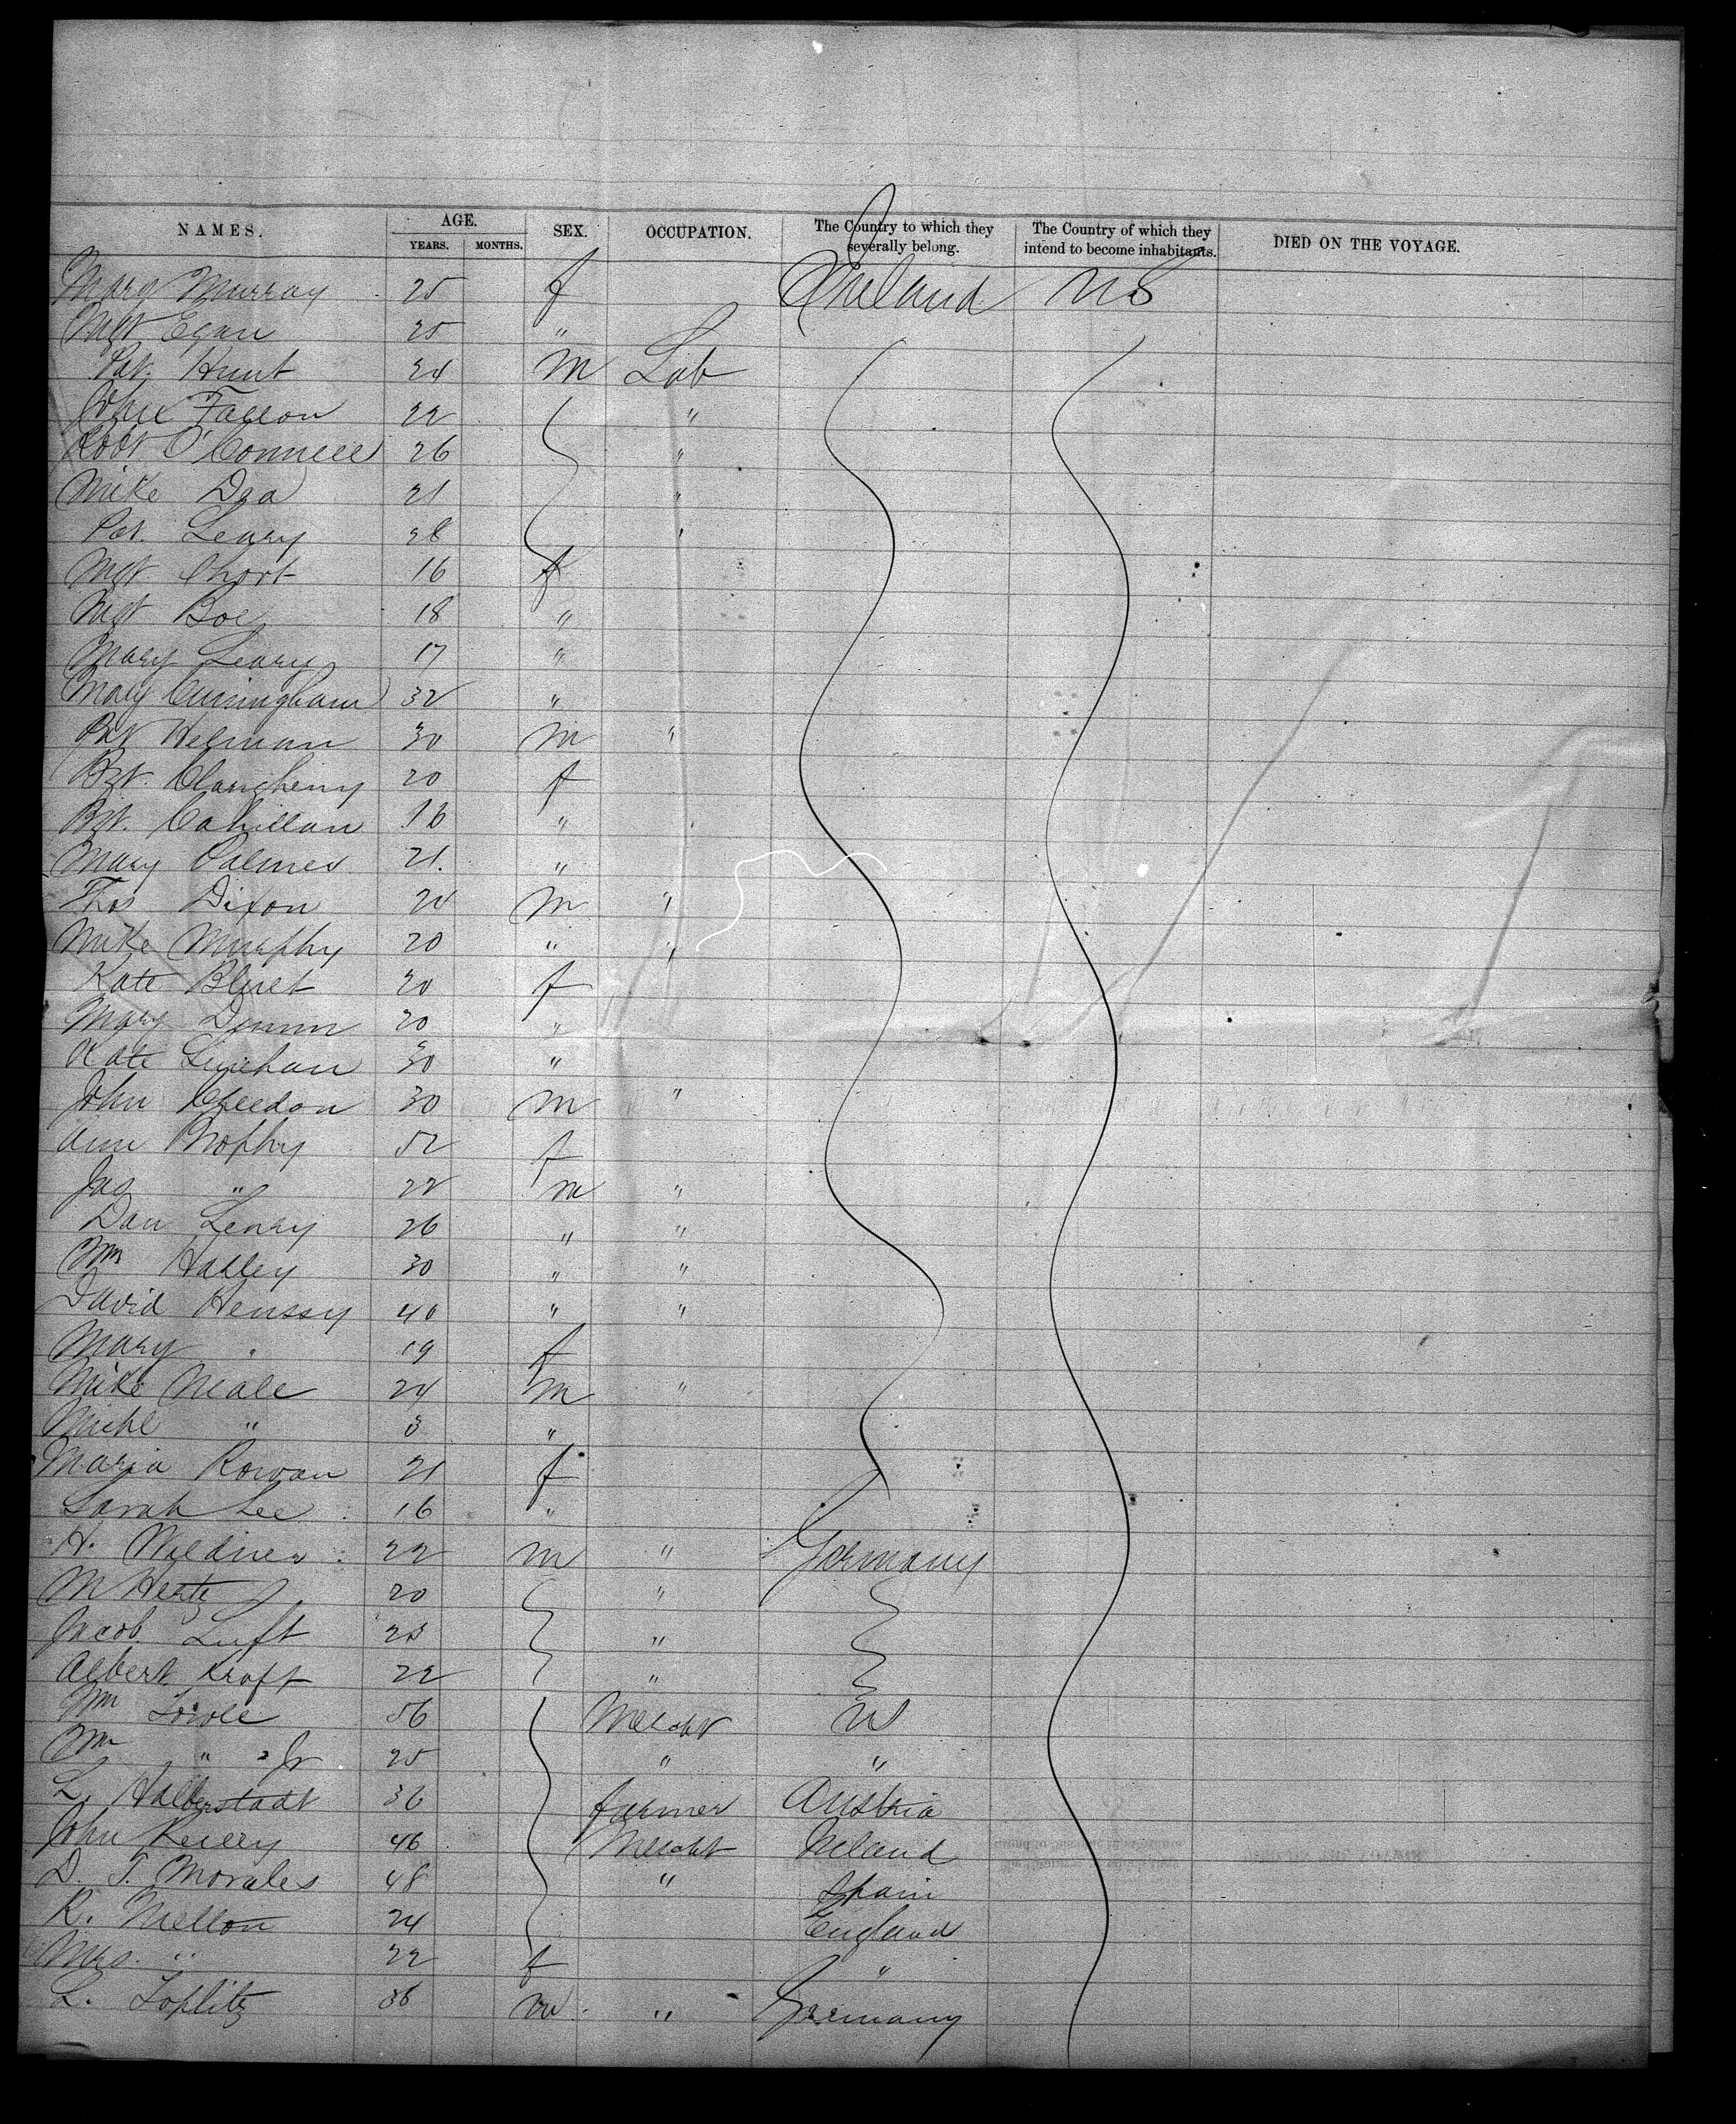 NAMES. AGE. YEARS. MONTHS. SEX. OCCUPATION. The Country to which they severally belong. The Country of which they intend to become inhabitants. DIED ON THE VOYAGE.
Mary Murray 25 f Ireland US
Mgt Egan 25 "
Pat. Hunt 24 m Lab
John Fallon 22 "
Robt O'Connell 26 "
Mike Dea 21 "
Pat. Leary 28 "
Mgt Short 16 f
Mgt Boe 18 "
Mary Leary 17 "
Mary Cunningham 32 "
Pat Helman 30 m "
Bgt. Claugherty 20 f
Bgt. Cahillan 16 "
Mary Palmer 21 "
Thos Dixon 21 m "
Mike Murphy 20 " "
Kate 20 f
Mary 20 "
Kate Linehan 30 "
John Creedon 30 m "
Ann Brophy 52 f
Jas " 22 m "
Dan Leary 26 " "
Wm Halley 30 " "
David Henssy 40 " "
Mary " 19 f
Mike Neale 24 m "
Michl " 3 "
Maria Rowan 21 f
Sarah Lee 16 "
H. Weldner 22 m " Germany
M Hertz 20 "
Jacob Luft 23 "
Albert Kroft 22 "
Wm Towle 56 Mercht US
Wm " Jr 25 " "
L. Halberstadt 36 farmer Austria
John 46 Mercht Ireland
D. T. Morales 48 " Spain
R. Mellon 24 England
Mrs. " 22 f "
L. Toplitz 36 m " Germany